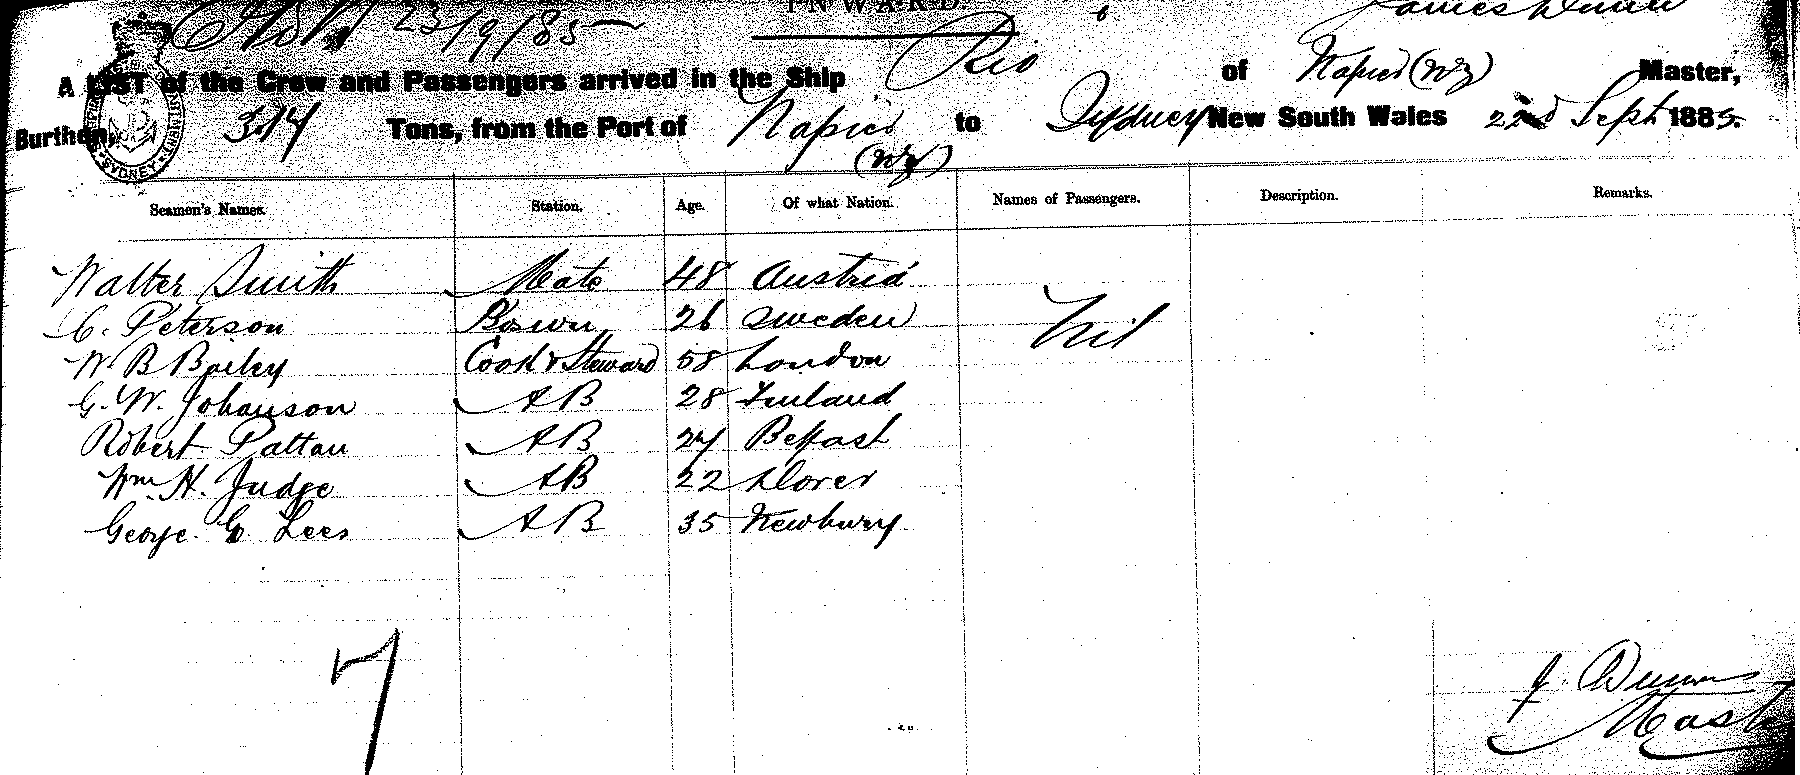 23/9/85
INWARD
James Dunn
A LIST of the Crew and Passengers arrived in the Ship Rio of Napier (NZ) Master,
Burthen, 314 Tons, from the Port of Napier (NZ) to Sydney New South Wales 22nd Sept 1885.
SYDNEY
Seamen's Names. Station. Age. Of what Nation. Names of Passengers. Description. Remarks.
Walter Smith Mate 48 Austria
C. Peterson Bosun 26 Sweden Nil
W. B Bailey Cook & Steward 58 London
G. W. Johanson AB 28 Finland
Robert Pattan AB 27 Belfast
Wm. H. Judge AB 22 Dover
George G Lees AB 35 Newbury
7
J. Dunn
Mast